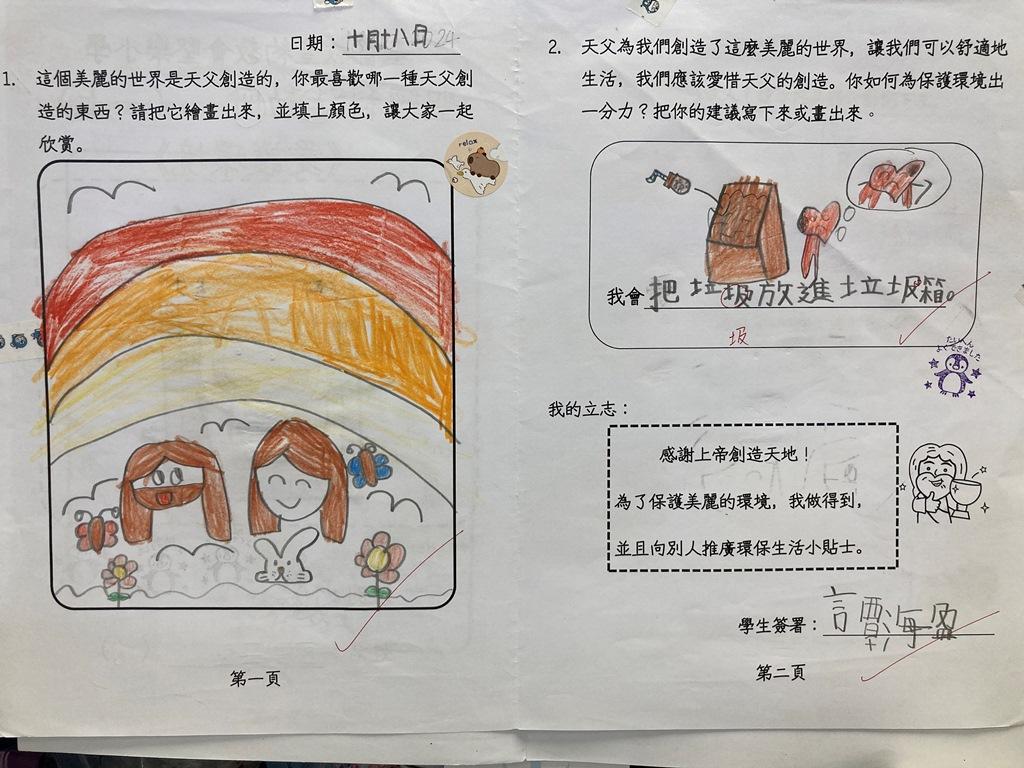 日期：十月十八日 24
1. 這個美麗的世界是天父創造的，你最喜歡哪一種天父創
造的東西？請把它繪畫出來，並填上顏色，讓大家一起
欣賞。
relax
第一頁
2. 天父為我們創造了這麼美麗的世界，讓我們可以舒適地
生活，我們應該愛惜天父的創造。你如何為保護環境出
一分力？把你的建議寫下來或畫出來。
我會 把垃圾放進垃圾箱。
圾
たいへん
よくできました
我的立志：
感謝上帝創造天地！
為了保護美麗的環境，我做得到，
並且向別人推廣環保生活小貼士。
學生簽署：譚海盈
第二頁